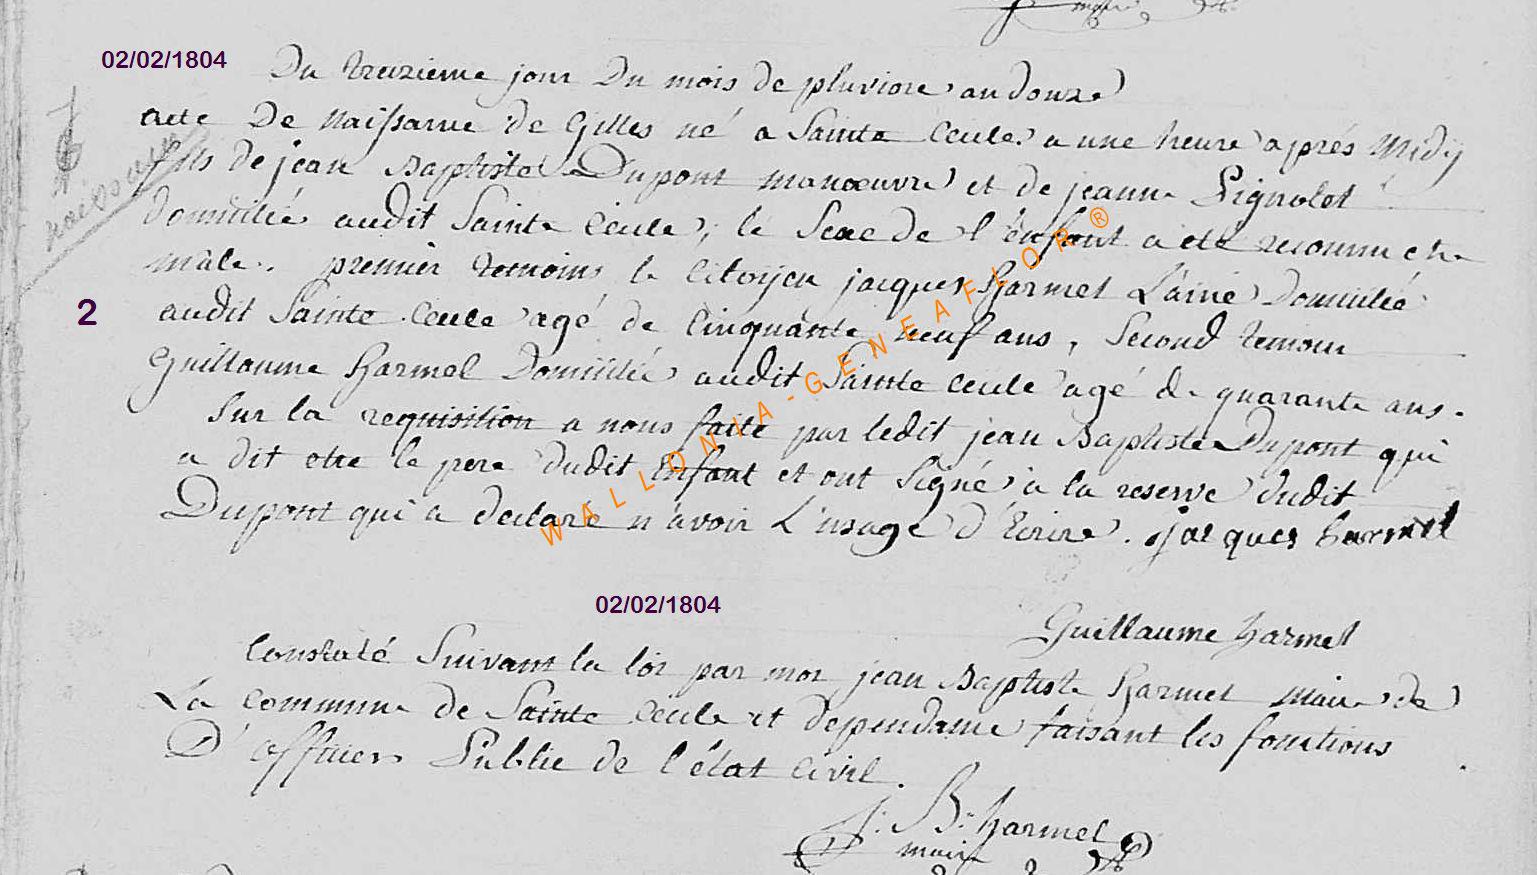 maire
02/02/1804
Du treizieme jour Du mois de pluviose an douze
acte De Naissance de Gilles né a Sainte Cecile a une heure après Midy
fils de jean Baptiste Dupont manœuvre et de jeanne Pignolet
Domicilié audit Sainte Cecile, le Sexe de l'enfant a été reconnu etre
mâle. premier temoins le Citoyen jacques Harmel L'ainé Domicilié
2
audit Sainte Cecile agé de Cinquante neuf ans, Second temoin
Guillaume Harmel Domicilié audit Sainte Cecile agé de quarante ans.
Sur la requisition a nous faite par ledit jean Baptiste Dupont qui
a dit etre le pere dudit Enfant et ont Signé à la reserve dudit
Dupont qui a declaré n'avoir L'usage d'Ecrire. jacques harmel
naissance
WALLONIA-GENEAFLOR®
02/02/1804
Guillaume harmel
Constaté Suivant la loi par moi jean Baptiste Harmel Maire de
La commune de Sainte Cecile et dependance faisant les fonctions
D'officier Public de l'état Civil.
J: B: harmel
maire